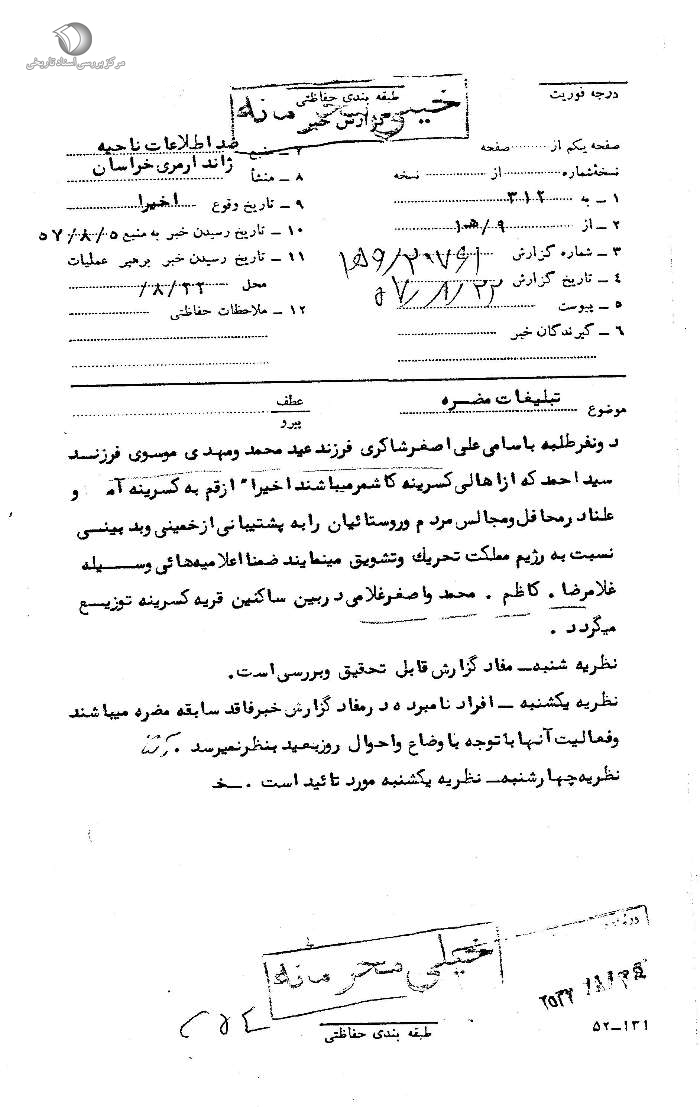 مرکز بررسی اسناد تاریخی
درجه فوریت
طبقه بندی حفاظتی
خیلی محرمانه
گزارش خبر
صفحه یکم از صفحه
نسخهٔ شماره از نسخه
۱ ـ به ۳۱۲
۲ ـ از ۹/ه۱
۳ ـ شماره گزارش
۴ ـ تاریخ گزارش ۵۷/۸/۲۲
۵ ـ پیوست
۶ ـ گیرندگان خبر
۷ ـ منبع ضد اطلاعات ناحیه
ژاندارمری خراسان
۸ ـ منشأ
۹ ـ تاریخ وقوع اخیرا
۱۰ ـ تاریخ رسیدن خبر به منبع ۵۷/۸/۵
۱۱ ـ تاریخ رسیدن خبر برهبر عملیات
محل ۲۲/۸/
۱۲ ـ ملاحظات حفاظتی
موضوع تبلیغات مضره
عطف
پیرو
دونفرطلبه باسامی علی اصغرشاکری فرزند عید محمد ومهدی موسوی فرزند
سید احمد که ازاهالی کسرینه کاشمرمیباشند اخیرا" ازقم به کسرینه آمده و
علنا درمحافل ومجالس مردم وروستائیان را به پشتیبانی ازخمینی وبدبینی
نسبت به رژیم مملکت تحریك وتشویق مینمایند ضمنا اعلامیه هائی وسیله
غلامرضا . کاظم . محمد واصغرغلامی دربین ساکنین قریه کسرینه توزیع
میگردد .
نظریه شنبه ـ مفاد گزارش قابل تحقیق وبررسی است.
نظریه یکشنبه ـ افراد نامبرده درمفاد گزارش خبرفاقد سابقه مضره میباشند
وفعالیت آنها با توجه باوضاع واحوال روزبعید بنظرنمیرسد .
نظریه چهارشنبه ـ نظریه یکشنبه مورد تائید است . ـخـ
خیلی محرمانه
طبقه بندی حفاظتی
۵۲ـ۱۳۱